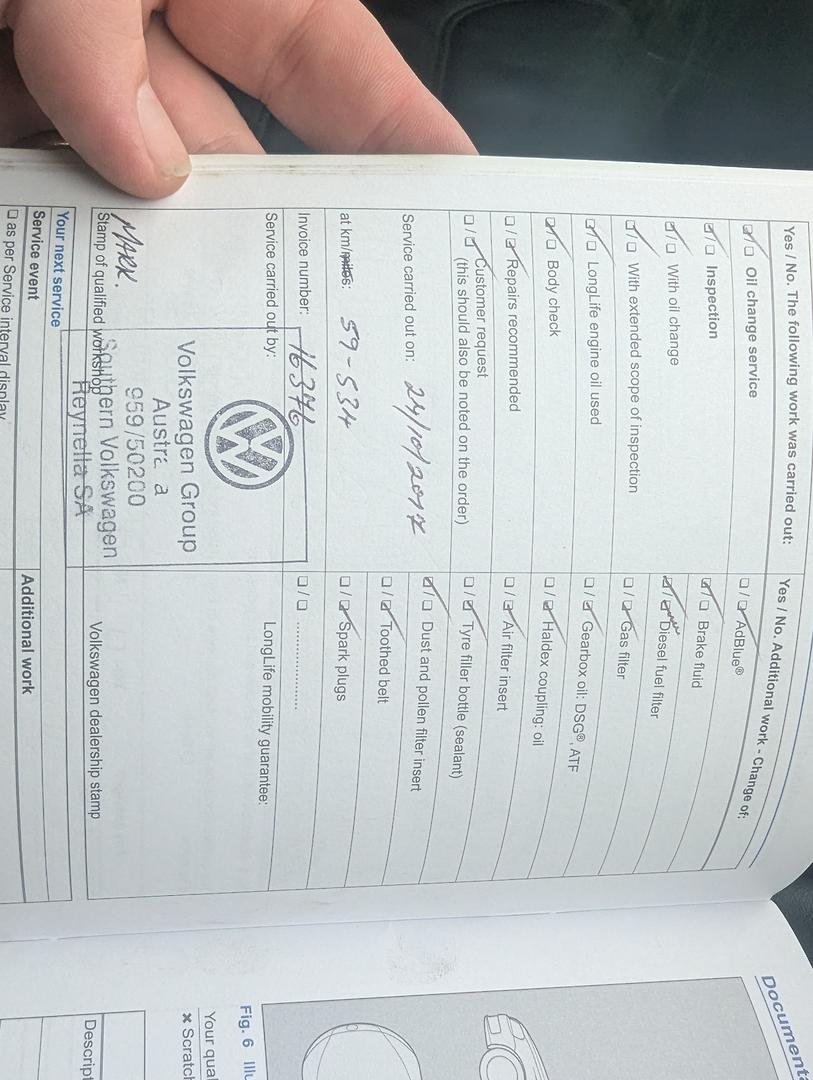 Yes / No. The following work was carried out:
☑/☐ Oil change service
☑/☐ Inspection
☑/☐ With oil change
☑/☐ With extended scope of inspection
☑/☐ LongLife engine oil used
☑/☐ Body check
☐/☑ Repairs recommended
☐/☑ Customer request
(this should also be noted on the order)
Service carried out on: 24/10/2017
at km/miles: 59-534
Invoice number: 16376
Service carried out by:
Volkswagen Group
Austra a
959/50200
Southern Volkswagen
Reynella SA
MARK.
Stamp of qualified workshop
Yes / No. Additional work - Change of:
☐/☑ AdBlue®
☑/☐ Brake fluid
☑/☑ Diesel fuel filter
☐/☑ Gas filter
☐/☑ Gearbox oil: DSG®, ATF
☐/☑ Haldex coupling: oil
☐/☑ Air filter insert
☐/☑ Tyre filler bottle (sealant)
☑/☐ Dust and pollen filter insert
☐/☑ Toothed belt
☐/☑ Spark plugs
☐/☐ ......................
LongLife mobility guarantee:
Volkswagen dealership stamp
Your next service
Service event
Additional work
☐ as per Service interval display
Documenta
Fig. 6 Illu
Your qual
× Scratch
Descript